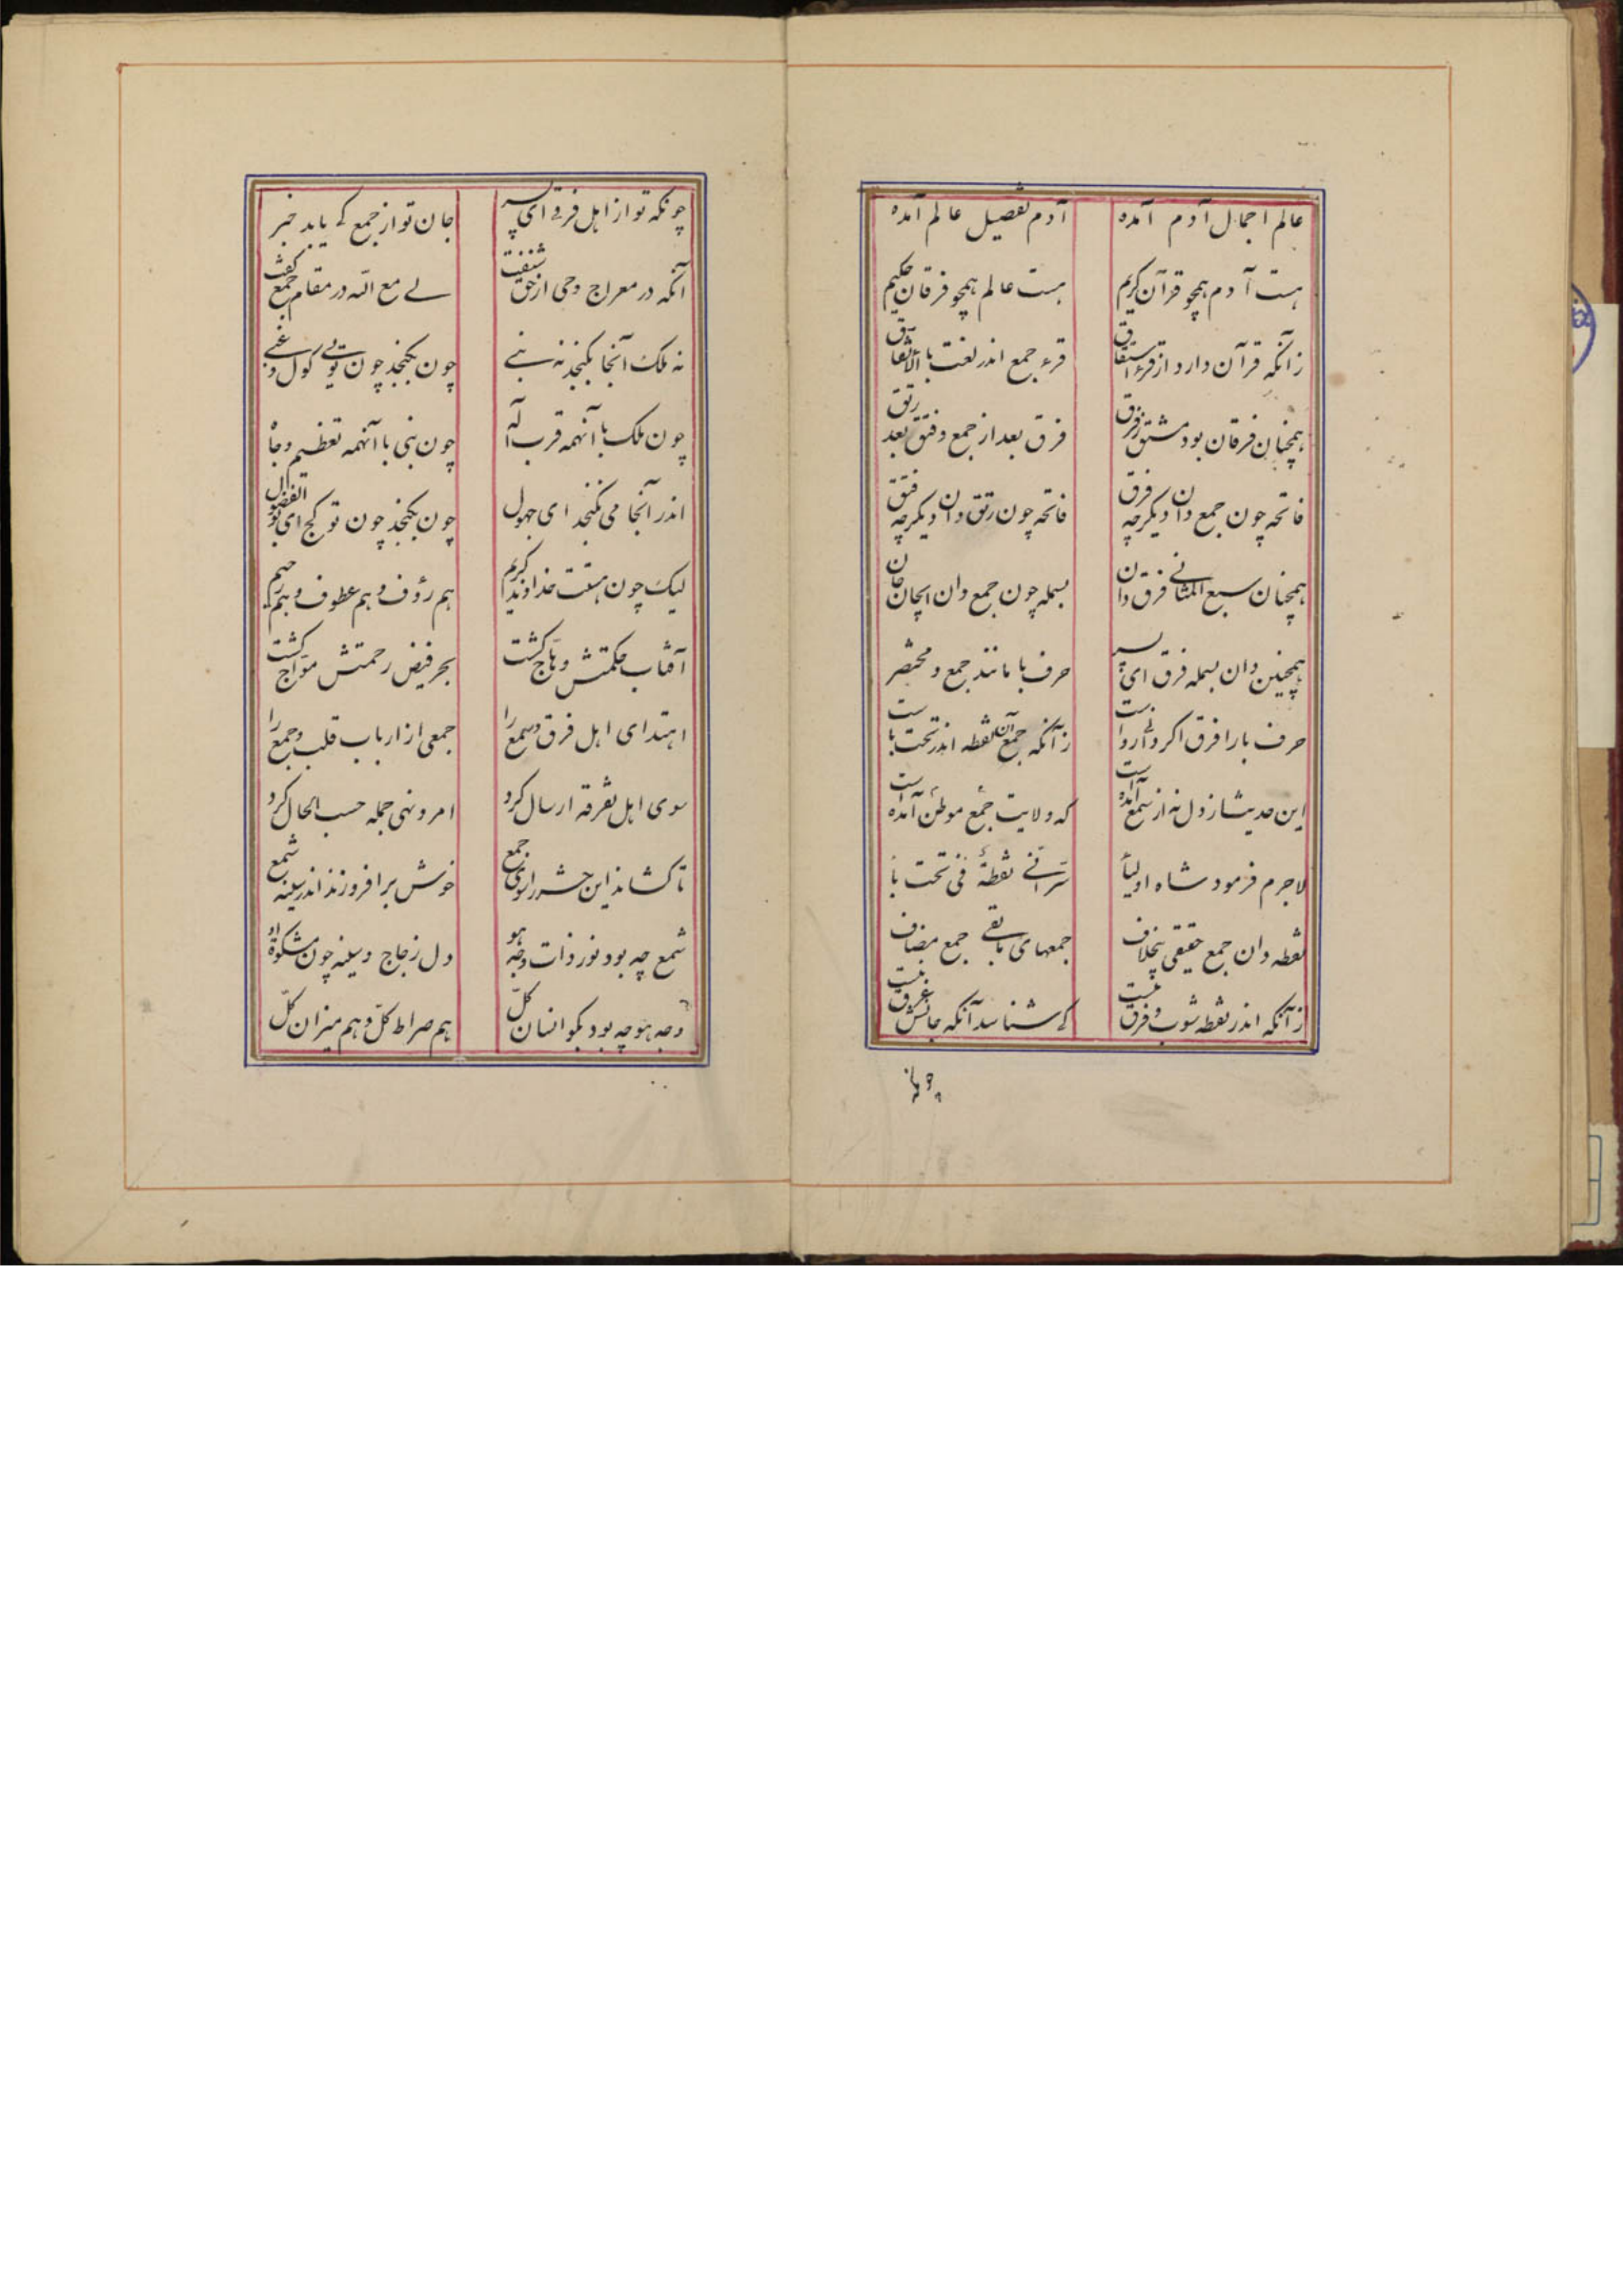 عالم اجمال آدم آمده آدم تفصیل عالم آمده
هست آدم همچو قرآن کریم هست عالم همچو فرقان حکیم
زانکه قرآن دارد از قرء اشتقاق قرء جمع اندر لغت با الاتفاق
همچنان فرقان بود مشتق ز فرق فرق بعد از جمع و فتق بعد رتق
فاتحه چون جمع دان دیگر چه فرق فاتحه چون رتق دان دیگر چه فتق
همچنان سبع المثانی فرق دان بسمله چون جمع دان ایجان جان
همچنین دان بسمله فرق ای پسر حرف با مانند جمع و مختصر
حرف با را فرق اگر دانی رواست زآنکه جمع آن نقطه اندر تحت باست
این حدیث از دل نه از سمع آمده است که ولایت جمع موطن آمده است
لاجرم فرمود شاه اولیأ سرّ انّی نقطةٌ فی تحت با
نقطه دان جمع حقیقی بیخلاف جمعهای مابقی جمع مضاف
زآنکه اندر نقطه شوب و فرق نیست که شناسد آنکه جانش غرق نیست
چونکه تو از اهل فرقی ای پسر جان تو از جمع کی یابد خبر
آنکه در معراج وحی از حق شنفت لی مع الله در مقام جمع گفت
نه ملک آنجا بگنجد نه نبی چون بگنجد چون تویی گول و غبی
چون ملک با آنهمه قرب اله چون نبی با آنهمه تعظیم و جاه
اندر آنجا می نگنجد ای جهول چون بگنجد چون تو گیج ای بو الفضول
لیک چون هست خداوند کریم هم رؤف و هم عطوف و هم رحیم
آفتاب حکمتش وهّاج گشت بحر فیض رحمتش موّاج گشت
اهتدای اهل فرق و سمع را جمعی از ارباب قلب و جمع را
سوی اهل تفرقه ارسال کرد امر و نهی جمله حسب الحال کرد
تا کشاند این حشر را سوی جمع خوش برافروزند اندر سینه شمع
شمع چه بود نور ذات وجه هو دل زجاج و سینه چون مشکوة او
وجه هو چه بود بگو انسان کلّ هم صراط کلّ و هم میزان کلّ